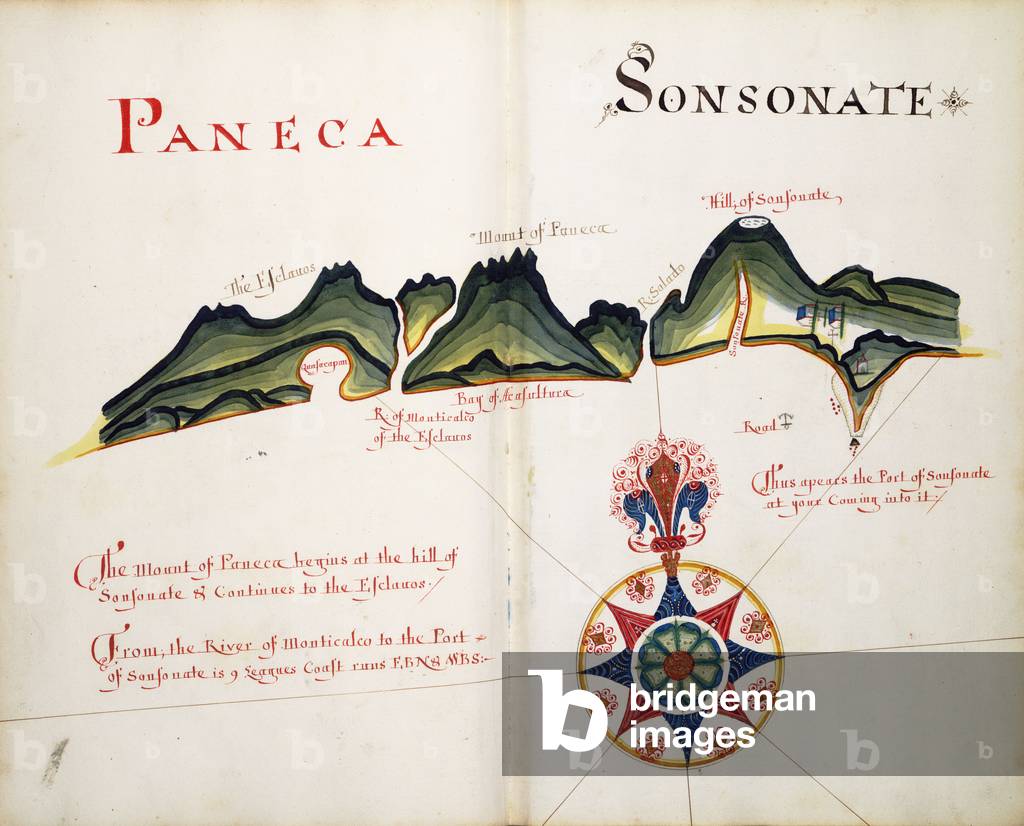 PANECA
SONSONATE
Hill, of Sonsonate
Mount of Paneca
The Esclavos
R. Salado
Sonsonate R.
Bay of Acasultura
R. of Monticalco
of the Esclavos
Road
Thus apears the Port of Sonsonate
at your Coming into it./
The Mount of Paneca begins at the hill of
Sonsonate & Continues to the Esclavos./
From, the River of Monticalco to the Port
of Sonsonate is 9 Leagues Coast runs E.B.N & W.B.S:-
bridgeman
images